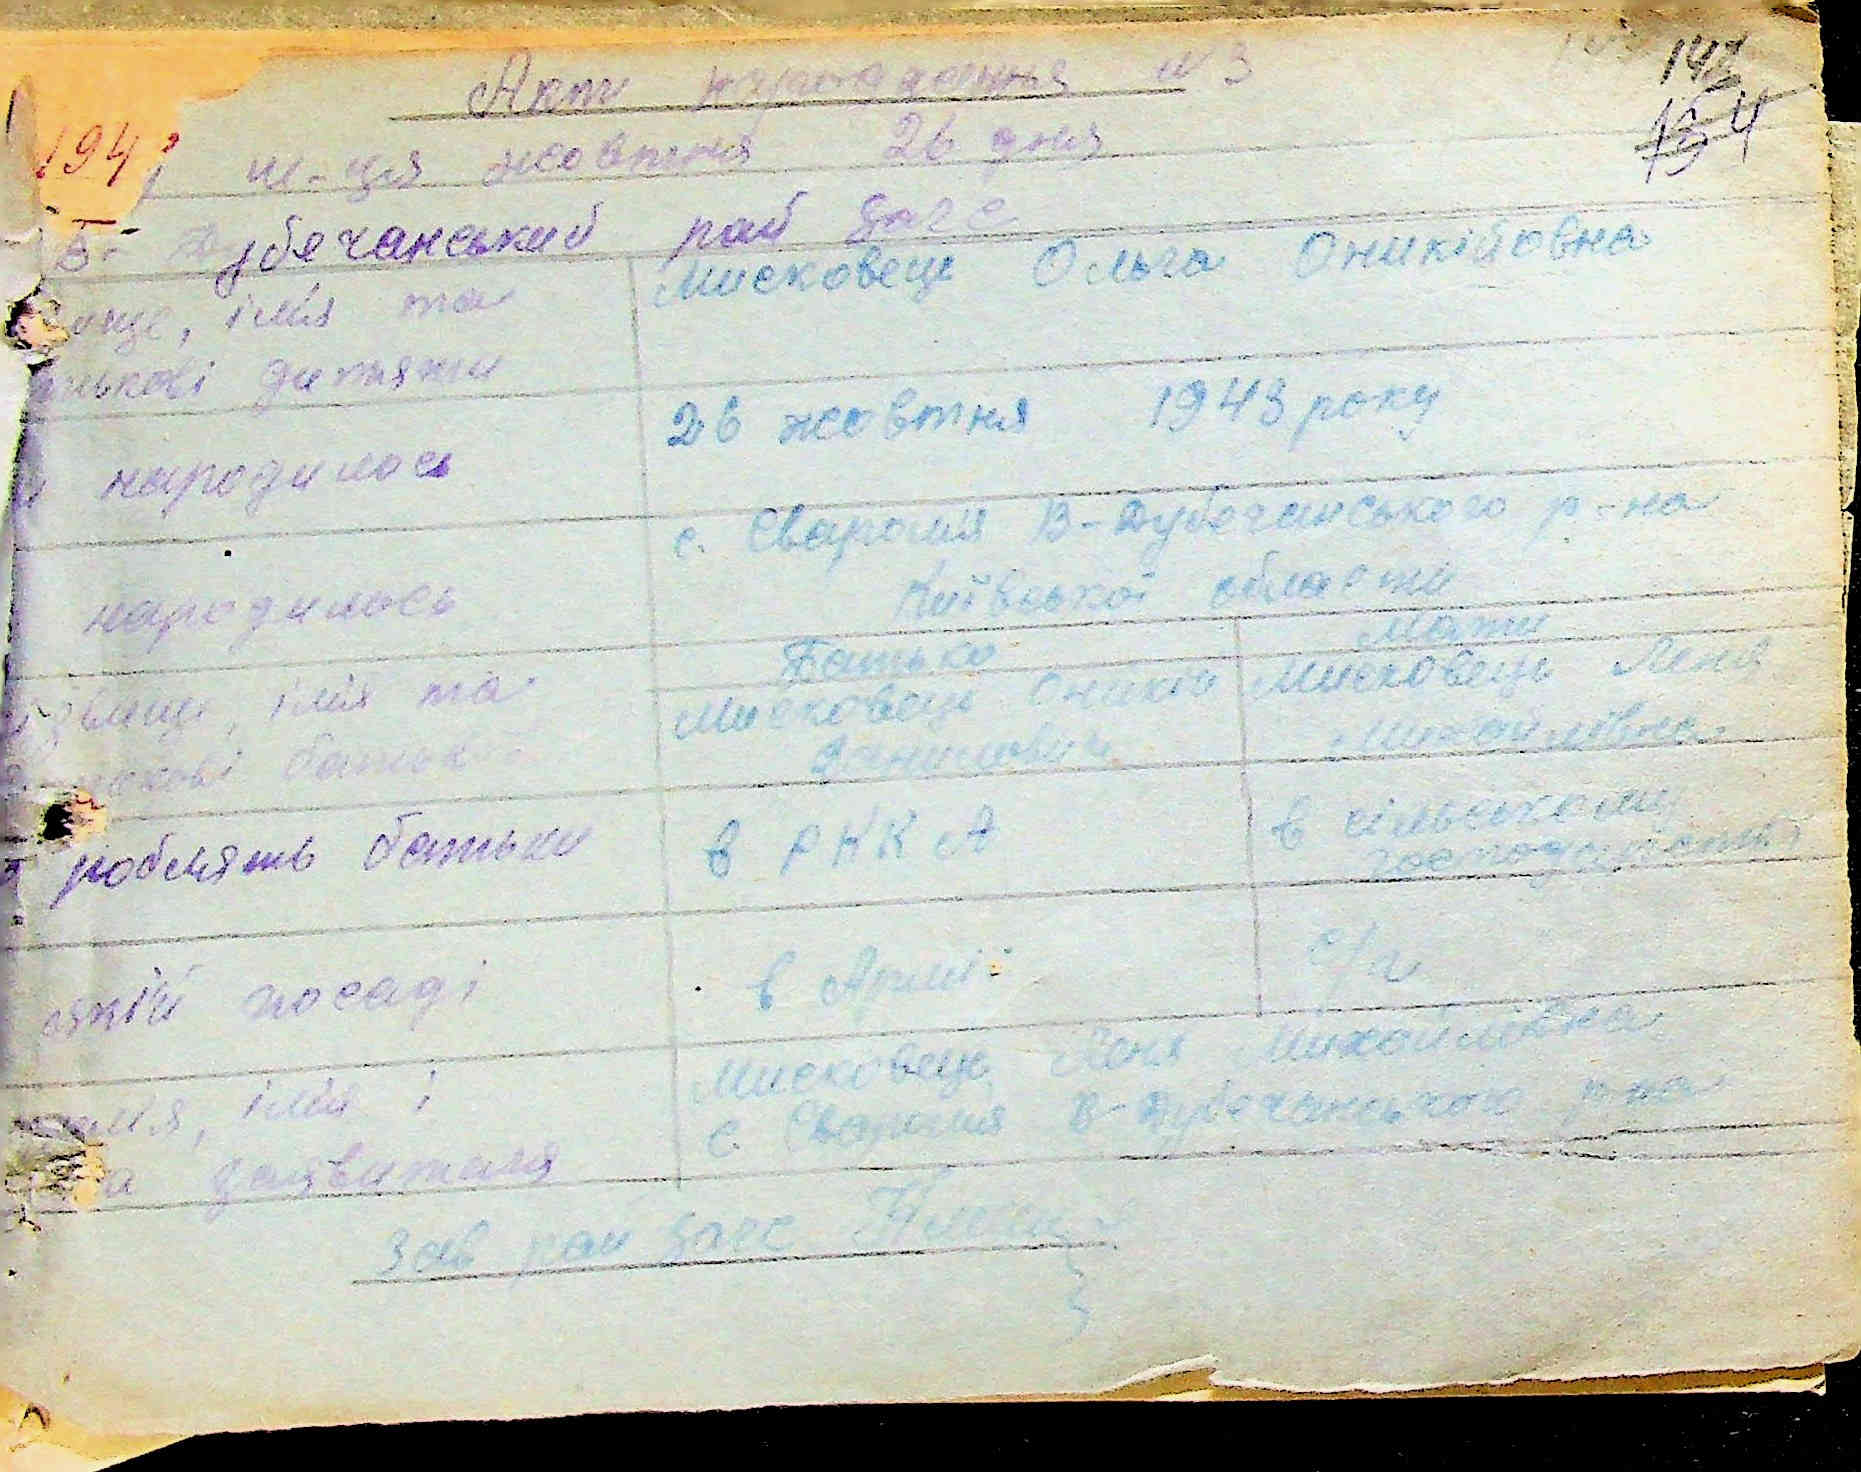 Акт народження N 3
142
154
194 м-ця жовтня 26 дня
В- Дубечанський рай загс
ище, ім'я та
Мисковець Ольга Оникійовна
дитяти
народилось
26 жовтня 1943 року
народилось
с. Сваромя В-Дубечанського р-на
Київської области
Батько
Мати
ім'я та
батьків
Мисковець Оникій
Данилович
Мисковець Леня
Михайлівна
роблять батьки
в РККА
в сільському
господарстві
якій посаді
в Армії
с/г
ім'я і
заявителя
Мисковець Леня Михайлівна
с. Сваромя В-Дубечанського р-на
Зав рай загс